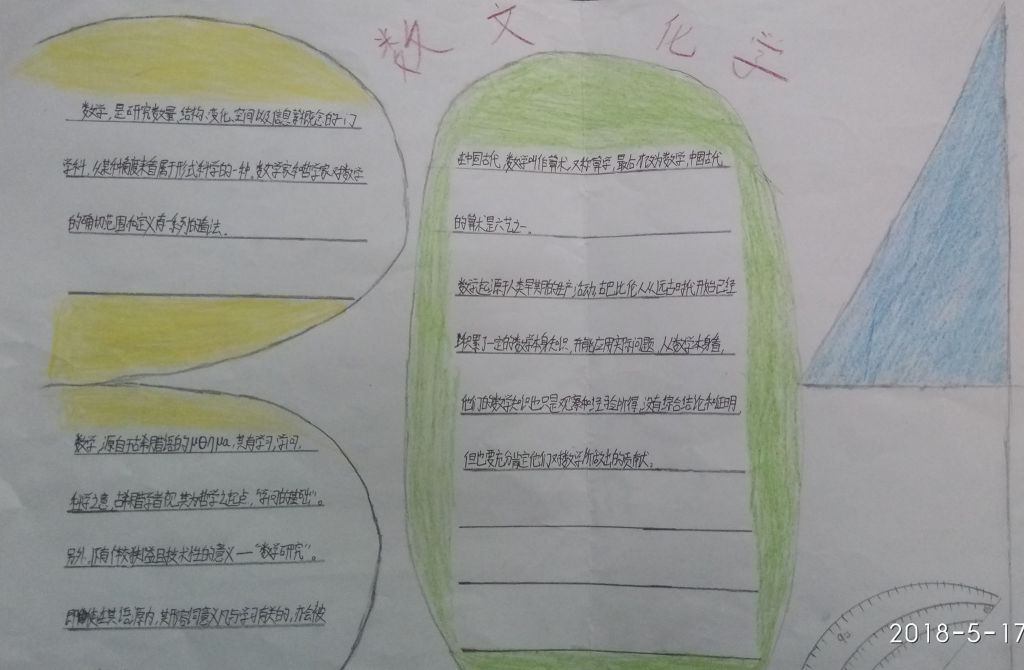 数学文化
数学,是研究数量、结构、变化、空间以及信息等概念的一门
学科,从某种角度来看属于形式科学的一种,数学家和哲学家对数学
的确切范围和定义有一系列的看法。
数学,源自于古希腊语的μθημα,其有学习、学问、
科学之意,古希腊学者视其为哲学之起点,“学问的基础”。
另外,还有个较狭隘且技术性的意义——“数学研究”。
即使在其语源内,其形容词意义凡与学习有关的,亦会被
在中国古代,数学叫作算术,又称算学,最后才改为数学,中国古代
的算术是六艺之一。
数学起源于人类早期的生产活动,古巴比伦人从远古时代开始已经
积累了一定的数学知识,并能应用实际问题,从数学本身看,
他们的数学知识也只是观察和经验所得,没有综合结论和证明,
但也要充分肯定他们对数学所做出的贡献。
90
2018-5-17